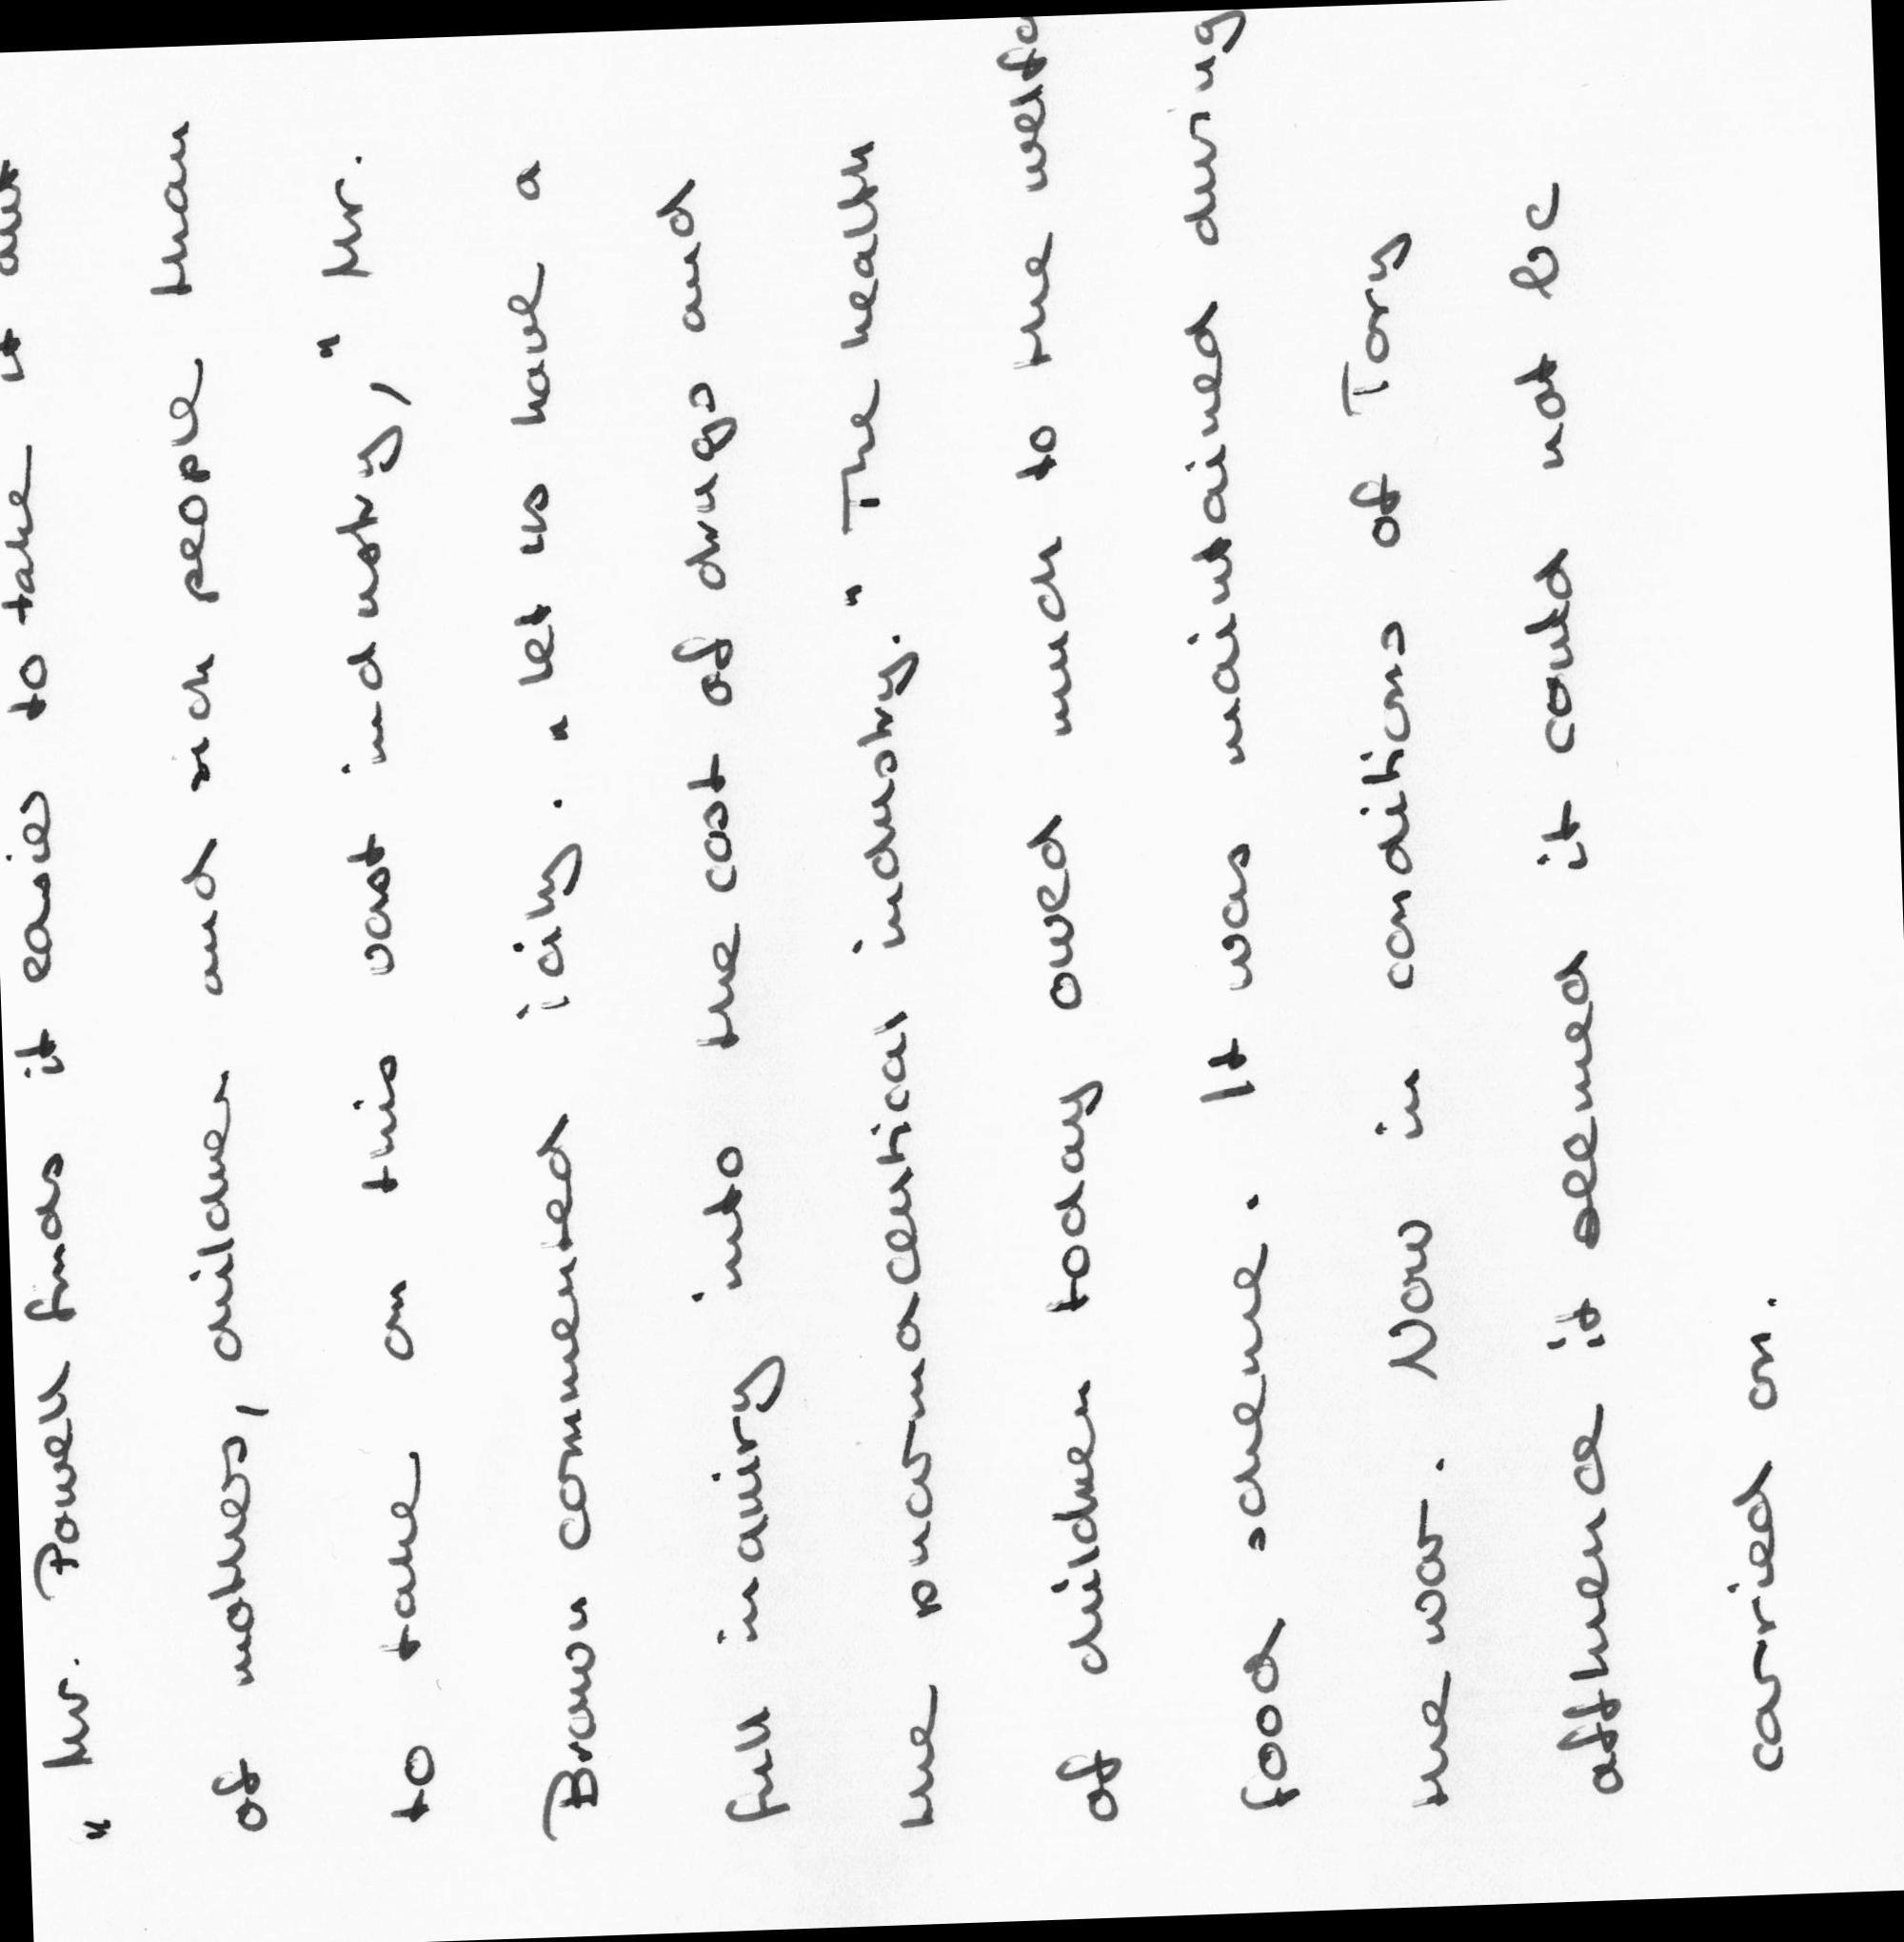 " Mr. Powell finds it easier to take it out
of mothes, children and sich people than
to take on this vast industry, " Mr.
Brown commented icily. " let us have a
full inquiry into the cost of drugs and
the pharmaceutical industry. " The health
of children today owed much to the welfa
food scheme. It was maintained during
the war. Now in conditions of Tory
affluence it seemed it could not be
carried on.